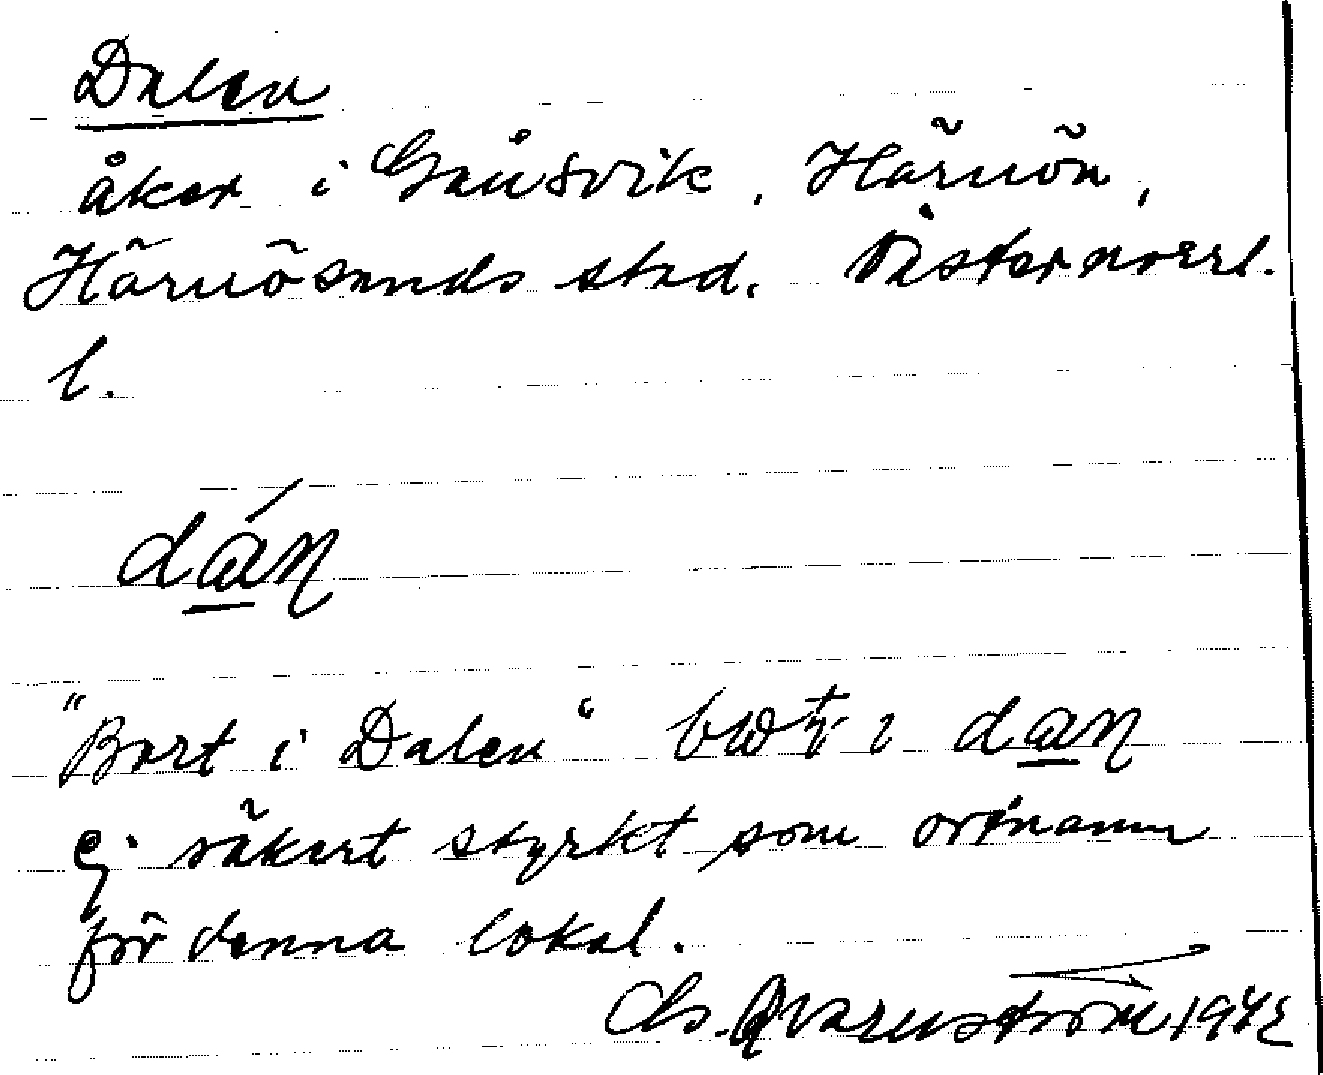 Dalen
åker i Gånsvik, Härnön,
Härnösands stad. Västernorrl.
l.
dán
"Bort i Dalen" i dan
ej säkert styrkt som ortnamn
för denna lokal.
Qvarnström 1942